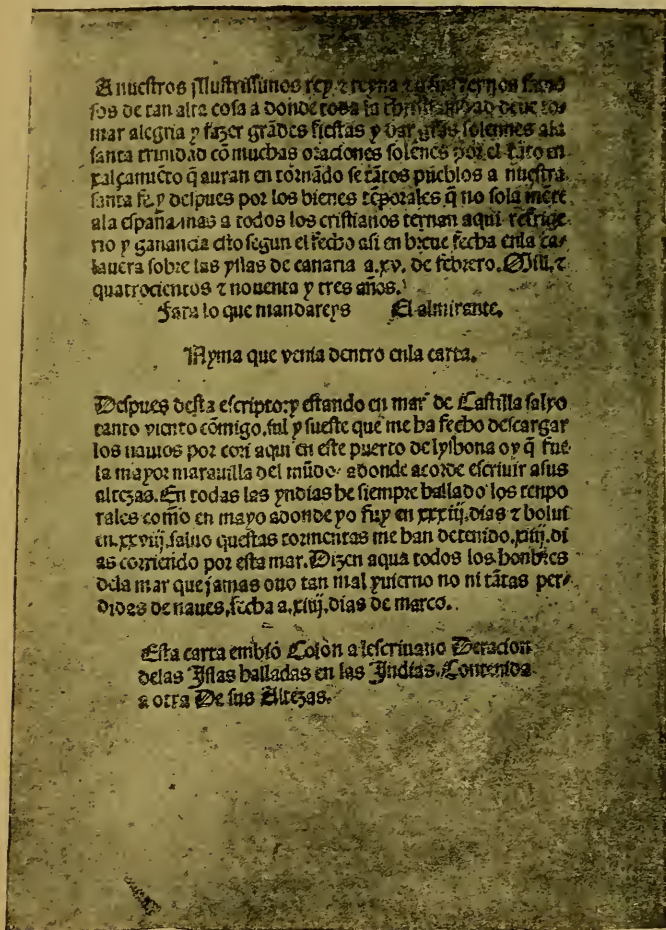 A nueſtros jlluſtriſſimos rey ⁊ reyna ⁊ a ſus reynos famo
ſos de tan alta coſa a donde toda la chriſtiandad deue to⸗
mar alegria y fazer grãdes fieſtas y dar grãs ſolennes ala
ſanta trinidad cõ muchas oraciones ſolẽnes por el tãto en
xalçamiẽto q̃ auran en tornãdo ſe tãtos pueblos a nueſtra
ſanta fe, y deſpues por los bienes tẽporales q̃ no ſola mẽte
ala eſpaña mas a todos los criſtianos ternan aqui refrige
rio y ganancia eſto ſegun el fecho aſi en breue fecha enla ca⸗
lauera ſobre las yſlas de canaria a.xv. de febrero. Mill, ⁊
quatrocientos ⁊ nouenta y tres años.
Fara lo que mandareys El almirante.
Nyma que venia dentro enla carta.
Deſpues deſta eſcripto: y eſtando en mar de Caſtilla ſalyo
tanto viento cõmigo. ſul y ſueſte que me ha fecho deſcargar
los nauios por cori aqui en eſte puerto de lyſbona oy q̃ fue
la mayor marauilla del mũdo adonde acorde eſcriuir aſus
altezas. En todas las yndias he ſiempre hallado los tenpo
rales como en mayo adonde yo fuy en xxxiij. dias ⁊ bolui
en. xxviij. ſaluo queſtas tormentas me han detenido. xiiij. di
as corriendo por eſta mar. Dizen aqua todos los honbres
dela mar que jamas ouo tan mal yuierno no ni tãtas per⸗
didas de naues. fecha a. xiiij. dias de março.
Eſta carta embió Colòn a leſcriuano Deracion
delas Jſlas halladas en las Jndias. Contenida
a otra De ſus Altezas.